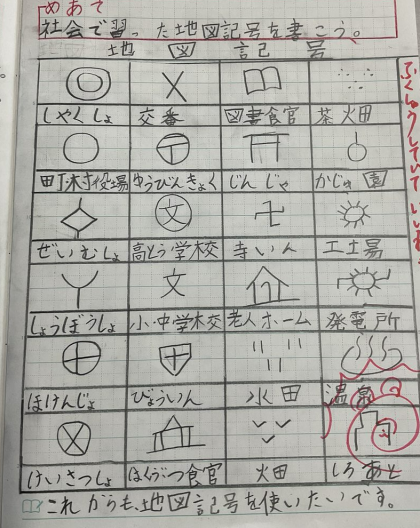 めあて
社会で習った地図記号を書こう。
地 図 記 号
しゃくしょ 交番 図書館 茶畑
町村役場 ゆうびんきょく じんじゃ かじゅ園
ぜいむしょ 高とう学校 寺いん 工土場
しょうぼうしょ 小・中学校 老人ホーム 発電所
文
文
ほけんじょ びょういん 水田 温泉
けいさつしょ はくぶつ館 畑 しろあと
これからも、地図記号を使いたいです。